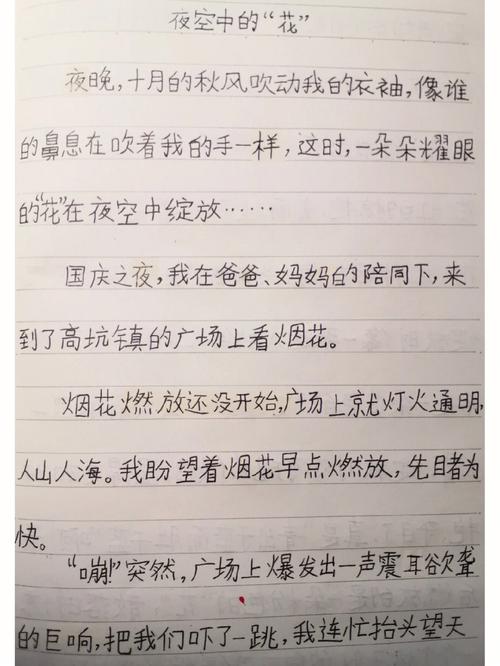 夜空中的“花”
夜晚,十月的秋风吹动我的衣袖,像谁
的鼻息在吹着我的手一样,这时,一朵朵耀眼
的“花”在夜空中绽放……
国庆之夜,我在爸爸、妈妈的陪同下,来
到了高坑镇的广场上看烟花。
烟花燃放还没开始,广场上就灯火通明,
人山人海。我盼望着烟花早点燃放,先目者为
快。
“嘣!”突然,广场上爆发出一声震耳欲聋
的巨响,把我们吓了一跳,我连忙抬头望天